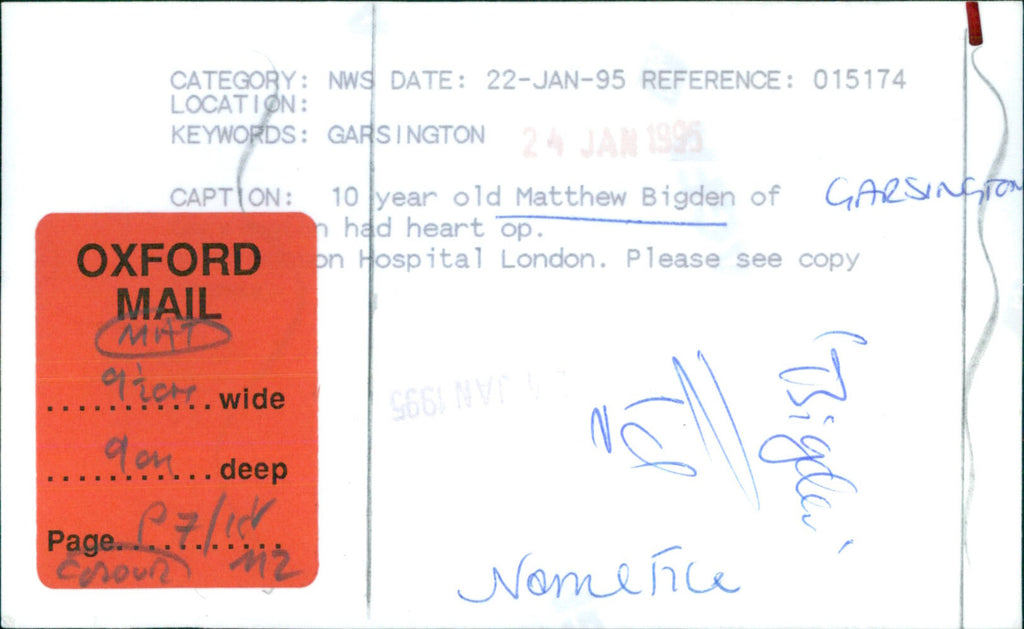 CATEGORY: NWS DATE: 22-JAN-95 REFERENCE: 015174
LOCATION:
KEYWORDS: GARSINGTON
24 JAN 1995
CAPTION: 10 year old Matthew Bigden of GARSINGTON
n had heart op.
on Hospital London. Please see copy
OXFORD
MAIL
MAT
9½cm wide
9cm deep
Page P7/
Colour M2
JAN 1995
Bigden
Name File